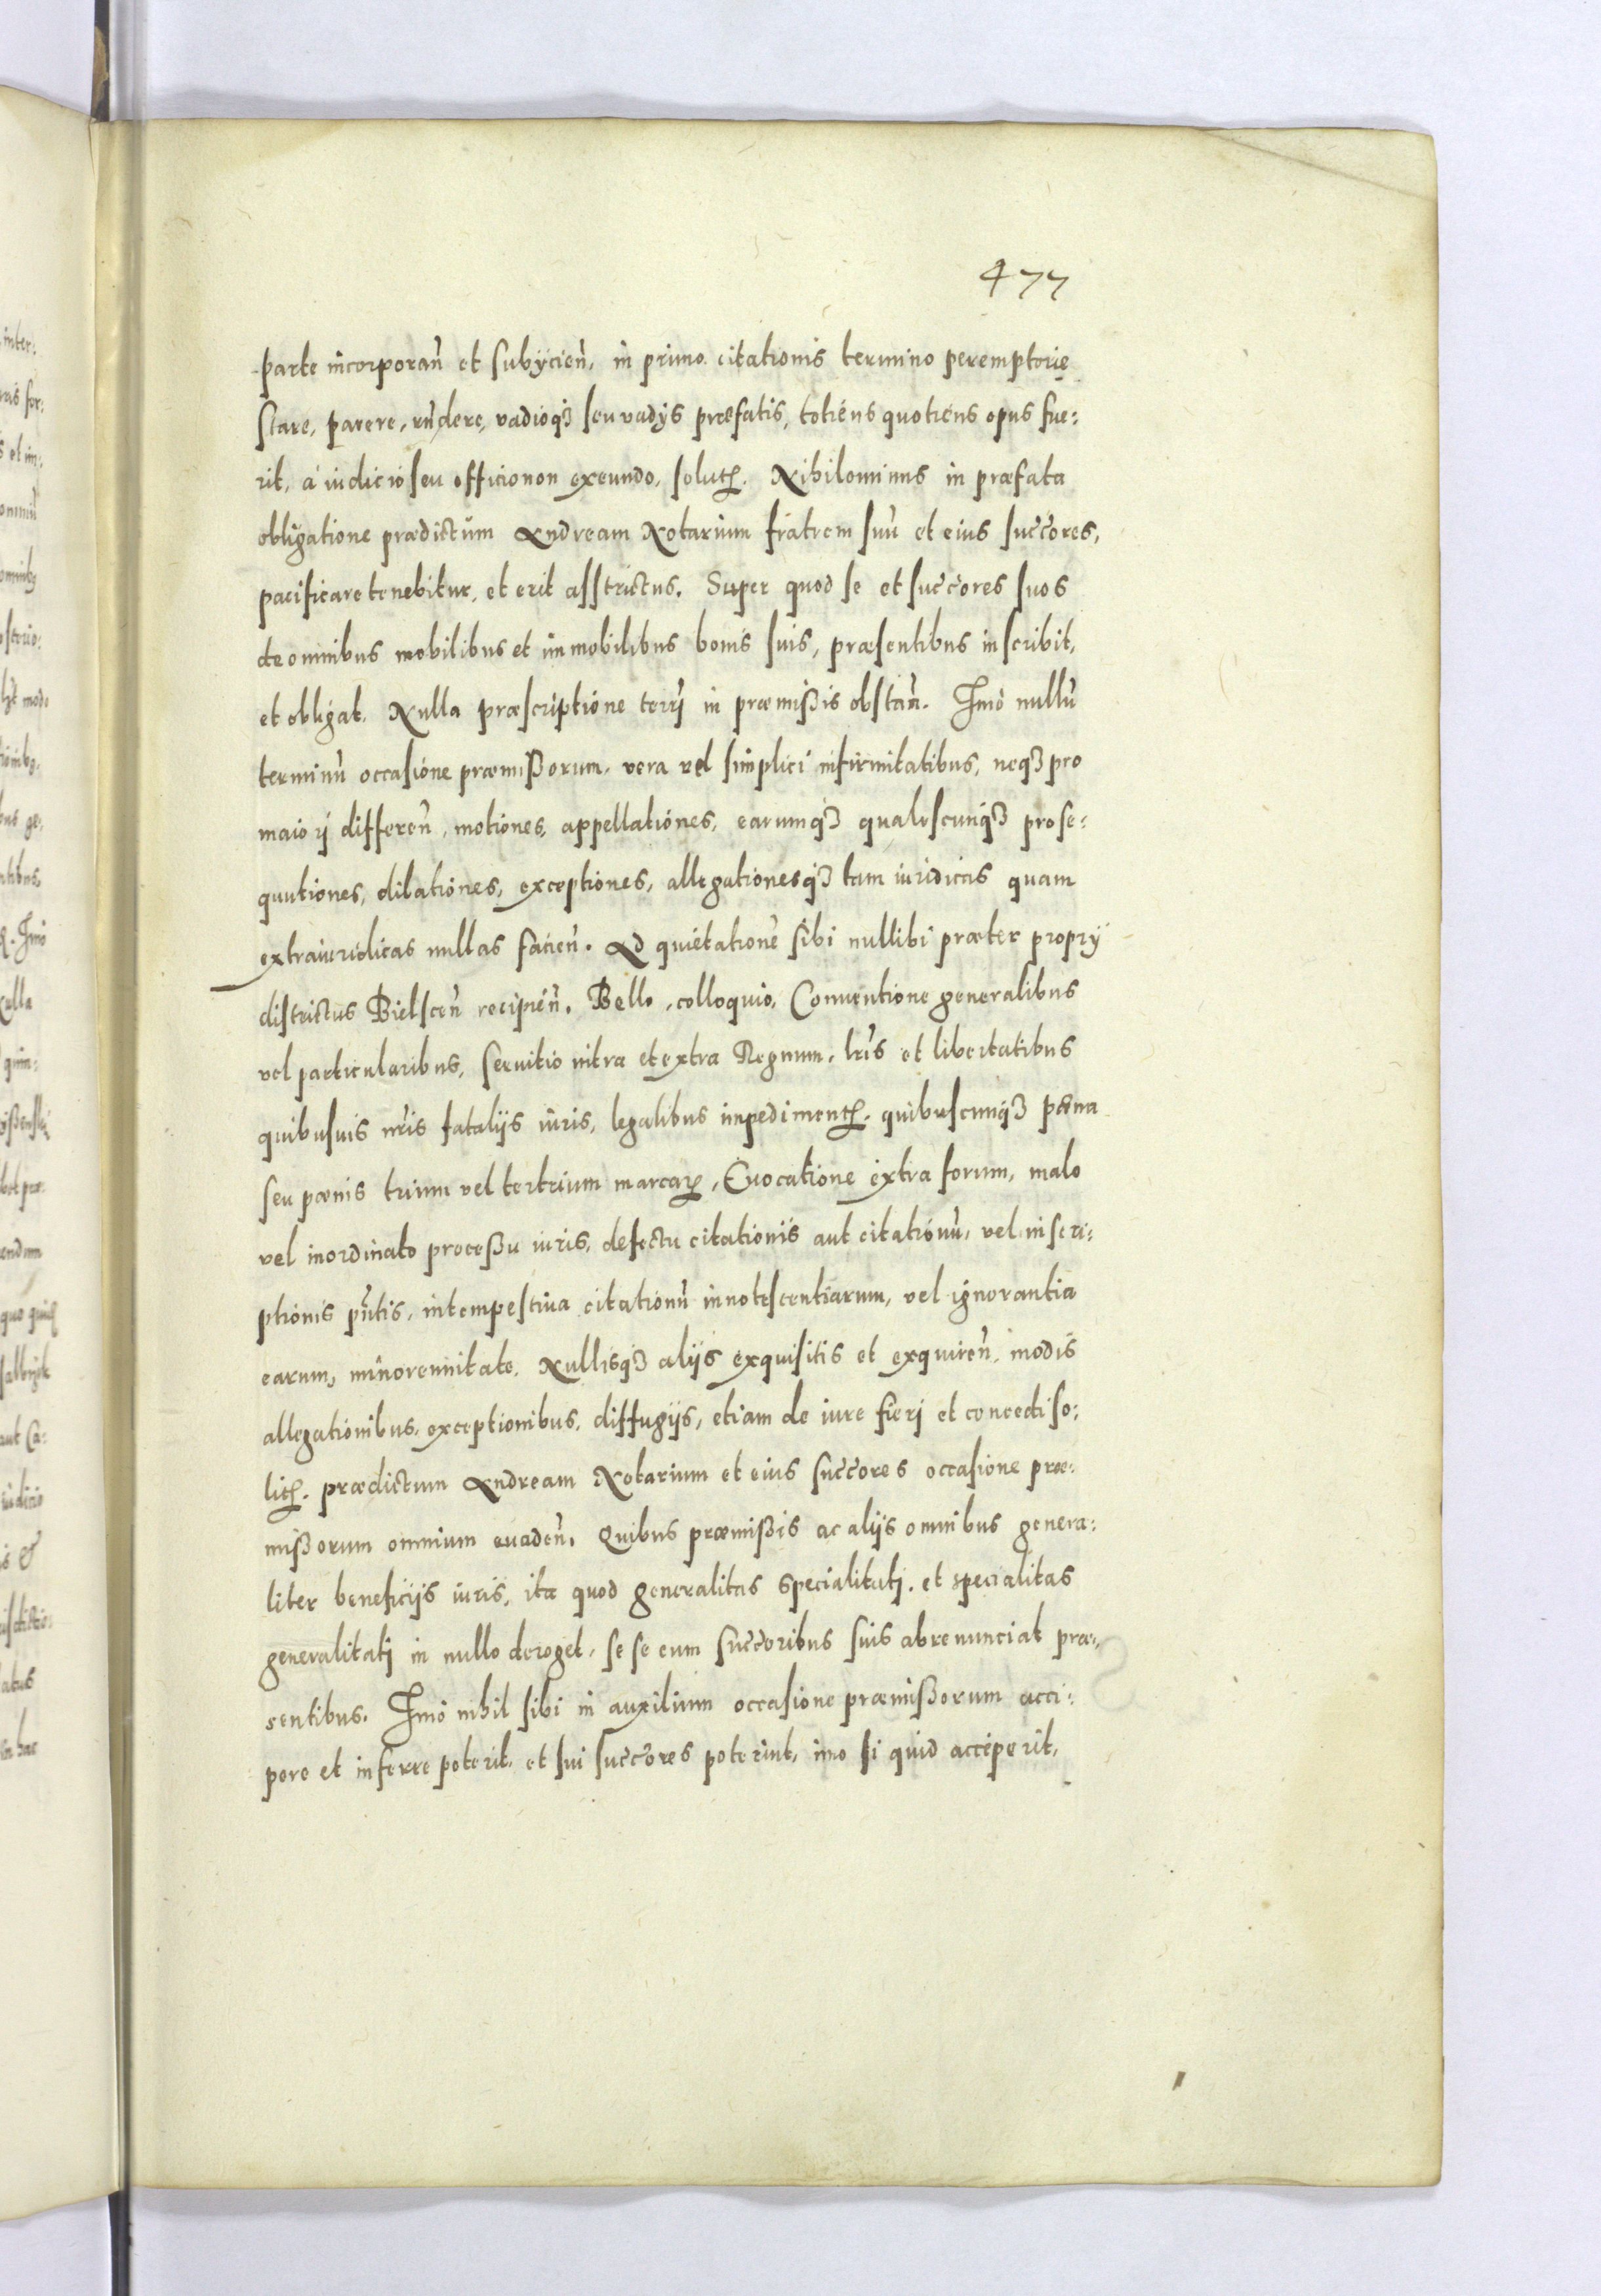 477
parte incorporan̄ et subÿcien̄, in primo citationis termino peremptorie
stare, parere, rn̄dere, vadioqȝ seu vadÿs præfatis, totiens quotiens opus fue:
rit, à iudicio seu officio non exeundo, solutꝭ. Nihilominus in præfata
obligatione prædictum Andream Notarium fratrem suū et eius succ̄ores,
pacificare tenebitur, et erit asstrictus. Super quod se et succ̄ores suos
de omnibus mobilibus et immobilibus bonis suis, præsentibus inscribit,
et obligat. Nulla præscriptione terrj in præmißis obstan̄. Imò nullū
terminū occasione præmißorum, vera vel simplici infirmitatibus, neqȝ pro
maiorj differen̄, motiones, appellationes, earumqȝ qualescunqȝ prose:
quutiones, dilationes, exceptiones, allegationesqȝ tam iuridicas quam
extraiuridicas nullas facien̄. Ad quietationē sibi nullibi præter proprÿ
districtus Bielscen̄ recipien̄. Bello, colloquio, Conuentione generalibus
vel particularibus, seruitio intra et extra Regnum, lrīs et libertatibus
quibusuis nrīs fatalijs iuris, legalibus impedimentꝭ, quibuscunqȝ pæna
seu pænis trium vel tertrium marcaꝝ, Euocatione extra forum, malo
vel inordinato proceßu iuris, defectu citationis aut citationū, vel inscri:
ptionis pn̄tis, intempestiua citationū innotescentiarum, vel ignorantia
earum, minorennitate. Nullisqȝ alijs exquisitis et exquiren̄, modis
allegationibus, exceptionibus, diffugijs, etiam de iure fierj et concedi so:
litꝭ. prædictum Andream Notarium et eius succ̄ores occasione præ:
mißorum omnium euaden̄. Quibus præmißis ac alijs omnibus genera:
liter beneficijs iuris, ita quod generalitas specialitatj, et specialitas
generalitatj in nullo deroget, se se cum succ̄oribus suis abrenunciat præ:
sentibus. Imò nihil sibi in auxilium occasione præmißorum acci:
pere et inferre poterit, et sui succ̄ores poterint, imo si quid acceperit,